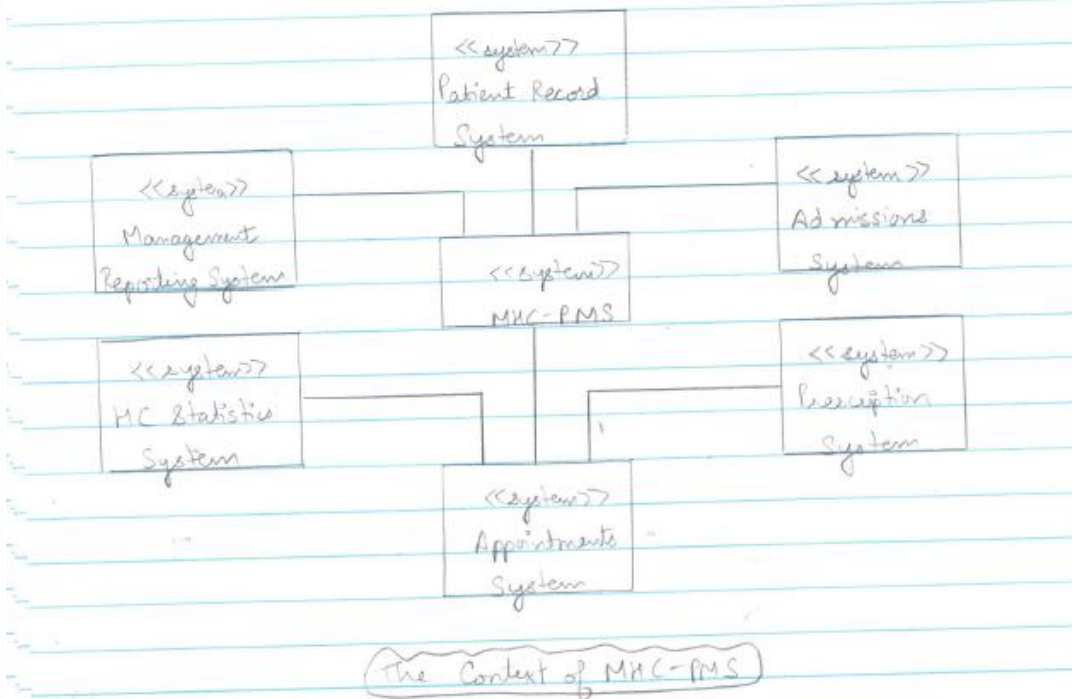 <<system>>
Patient Record
System
<<system>>
Management
Reporting System
<<system>>
Admissions
System
<<system>>
MHC-PMS
<<system>>
HC Statistics
System
<<system>>
Prescription
System
<<system>>
Appointments
System
The Context of MHC-PMS